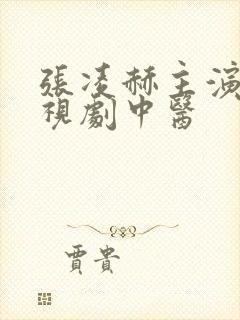 張凌赫主演
視劇中醫
賈貴